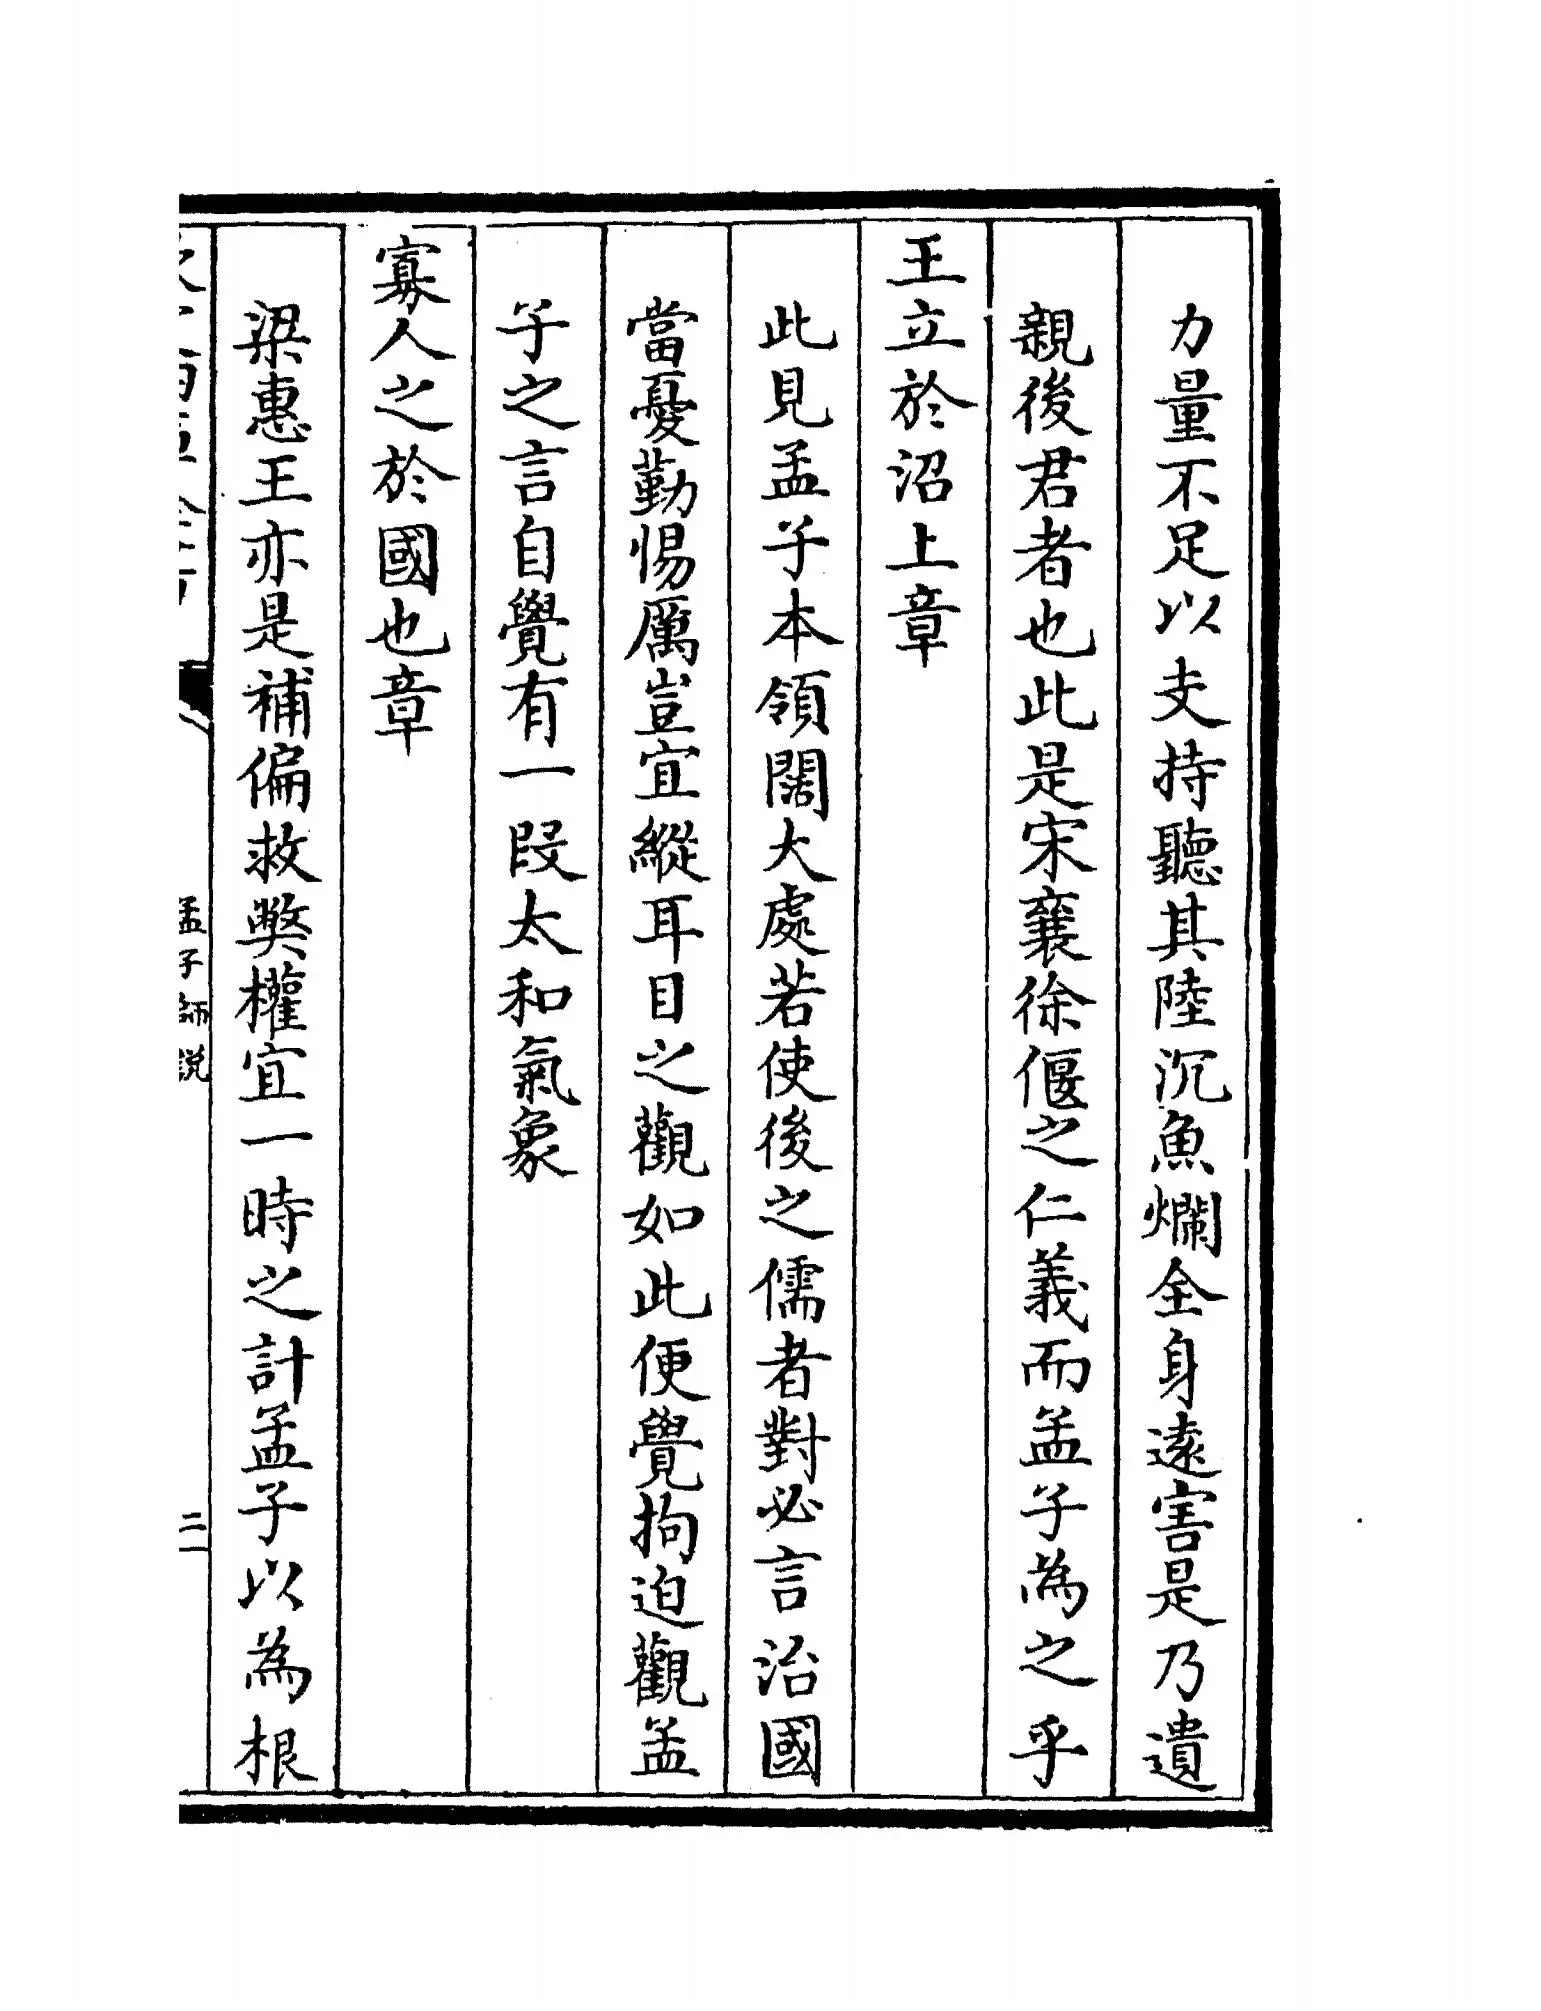 力量不足以支持聽其陸沉魚爛全身逺害是乃遺
親後君者也此是宋襄徐偃之仁義而孟子為之乎
王立於沼上章
此見孟子本領闊大處若使後之儒者對必言治國
當憂勤惕厲豈宜縱耳目之觀如此便覺拘迫觀孟
子之言自覺有一段太和氣象
寡人之於國也章
梁惠王亦是補偏救弊權宜一時之計孟子以為根
孟子師説
二